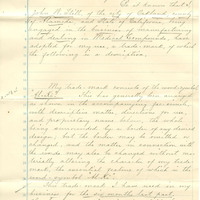 Be it known that I,
John H. Still of the city of Oakland, county
of Alameda, and State of California, being
engaged in the business of manufacturing
and
adopted for my use, a trade-mark, of which
the following is a description.
My trade-mark consists of the word symbol
This is generally arranged
as shown in the accompanying
with descriptive matter, directions for use,
and proprietary name below, the whole
being surrounded by a border of any desired
design; but the border may be omitted or
changed, and the matter in connection with
the words may also be changed without ma-
terially altering the character of my trade-
mark, the essential feature of which is the
word symbol
This trade-mark I have used in my
business for the six months last past,